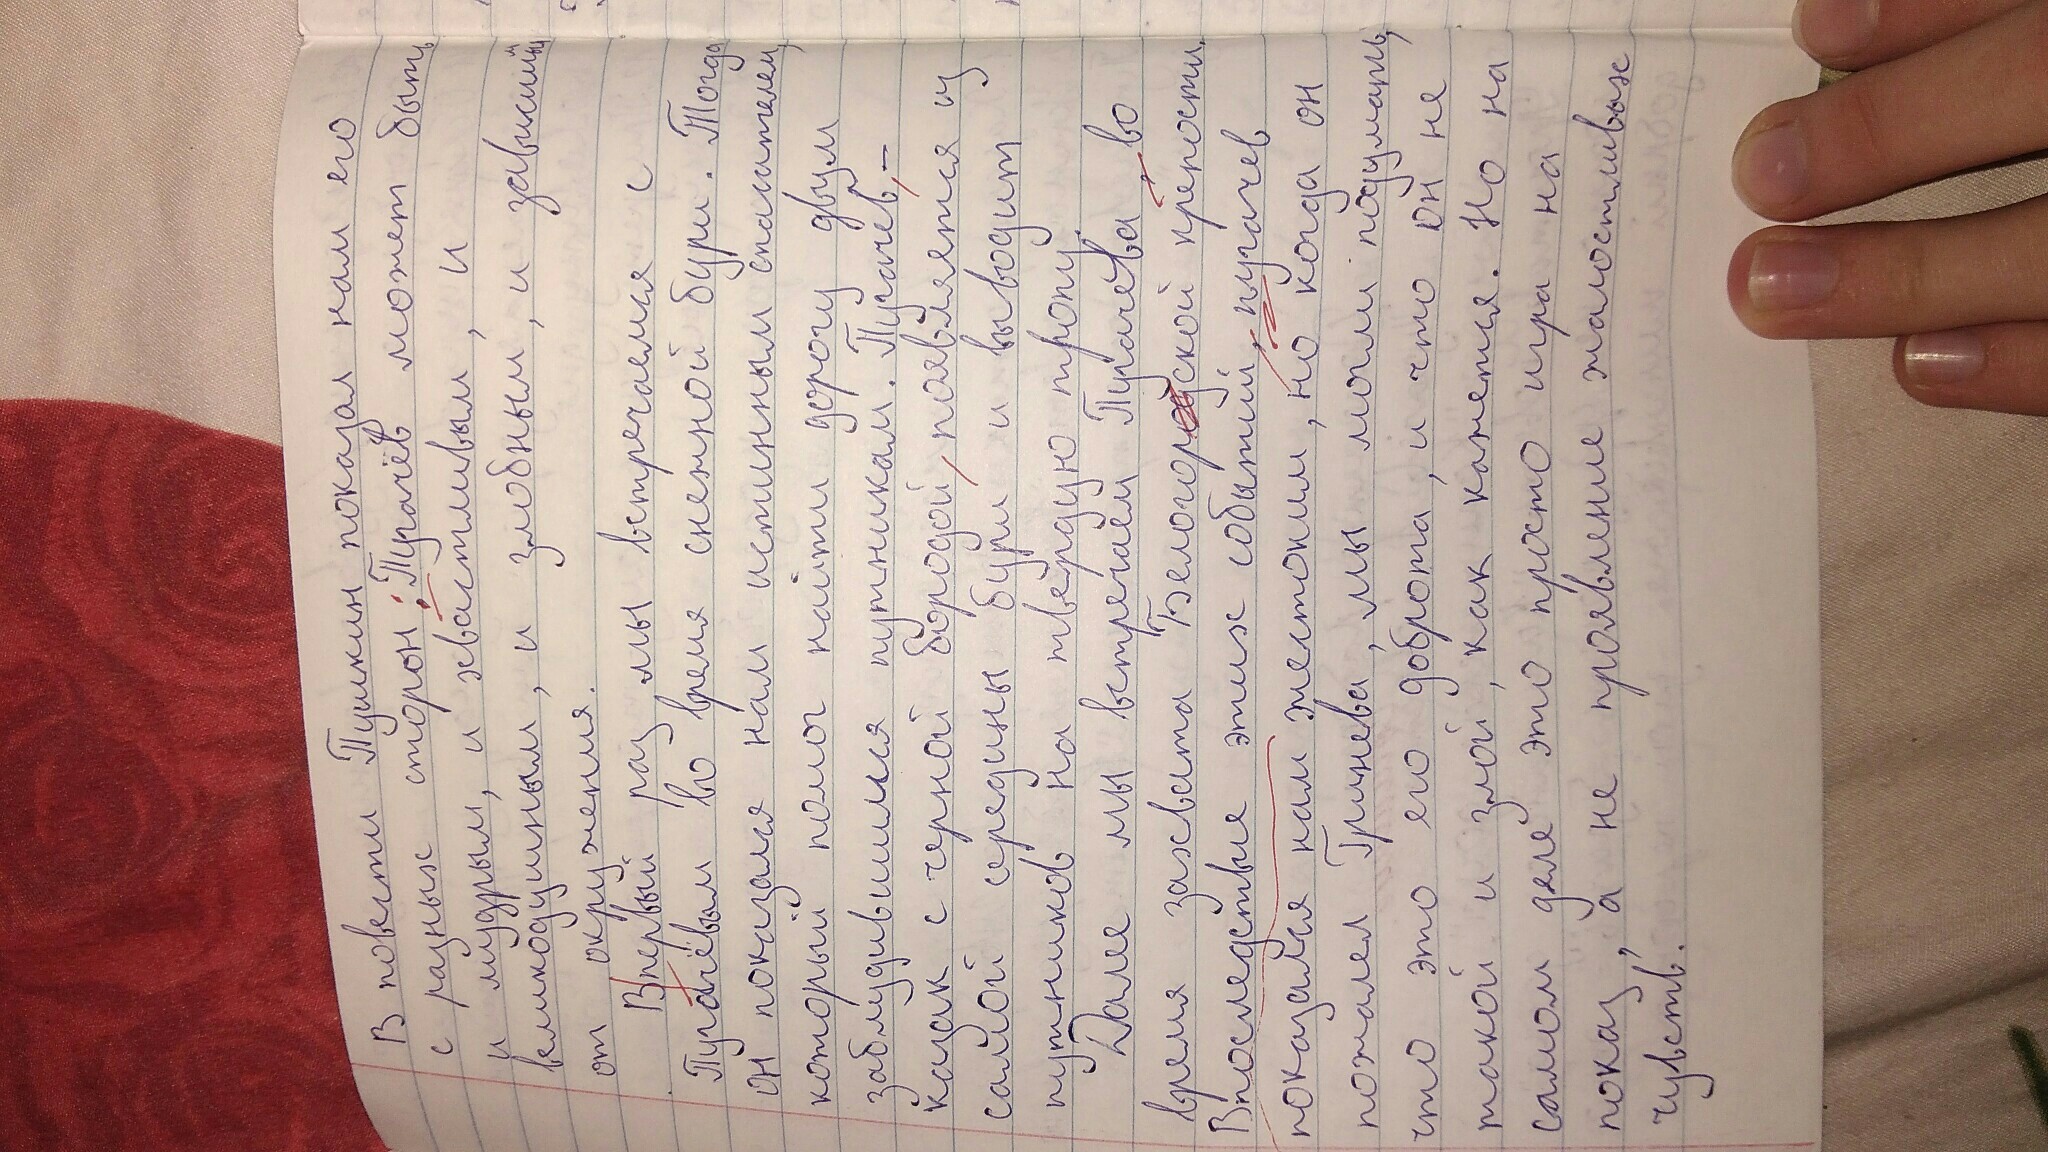 В повести Пушкин показал нам его
с разных сторон: Пугачёв может быть
и мудрым, и хвастливым, и
великодушным, и злобным, и зависимый
от окружения.
Впервый раз мы встречаемся с
Пугачёвым во время снежной бури. Тогда
он показался нам истинным спасителем,
который помог найти дорогу двум
заблудившимся путникам. Пугачев, –
казак с черной бородой, появляется из
самой середины бури и выводит
путников на твёрдую тропу.
Далее мы встречаем Пугачёва во
время захвата Белогорской крепости.
Впоследствие этих событий, пугачев
показался нам жестоким, но когда он
пожалел Гринева, мы могли подумать,
что это его доброта, и что он не
такой и злой, как кажется. Но на
самом деле это просто игра на
показ, а не проявление жалостливых
чувств.